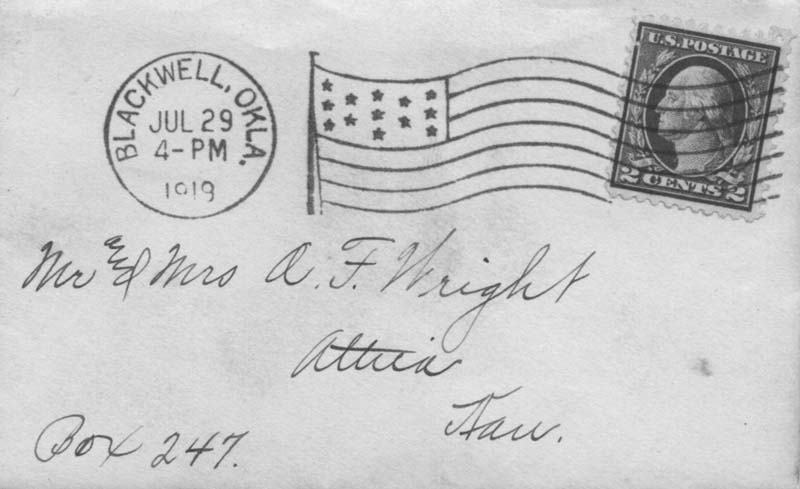 BLACKWELL, OKLA.
JUL 29
4-PM
1919
U.S. POSTAGE
2 CENTS 2
Mr & Mrs A. F. Wright
Attica
Kan.
Box 247.